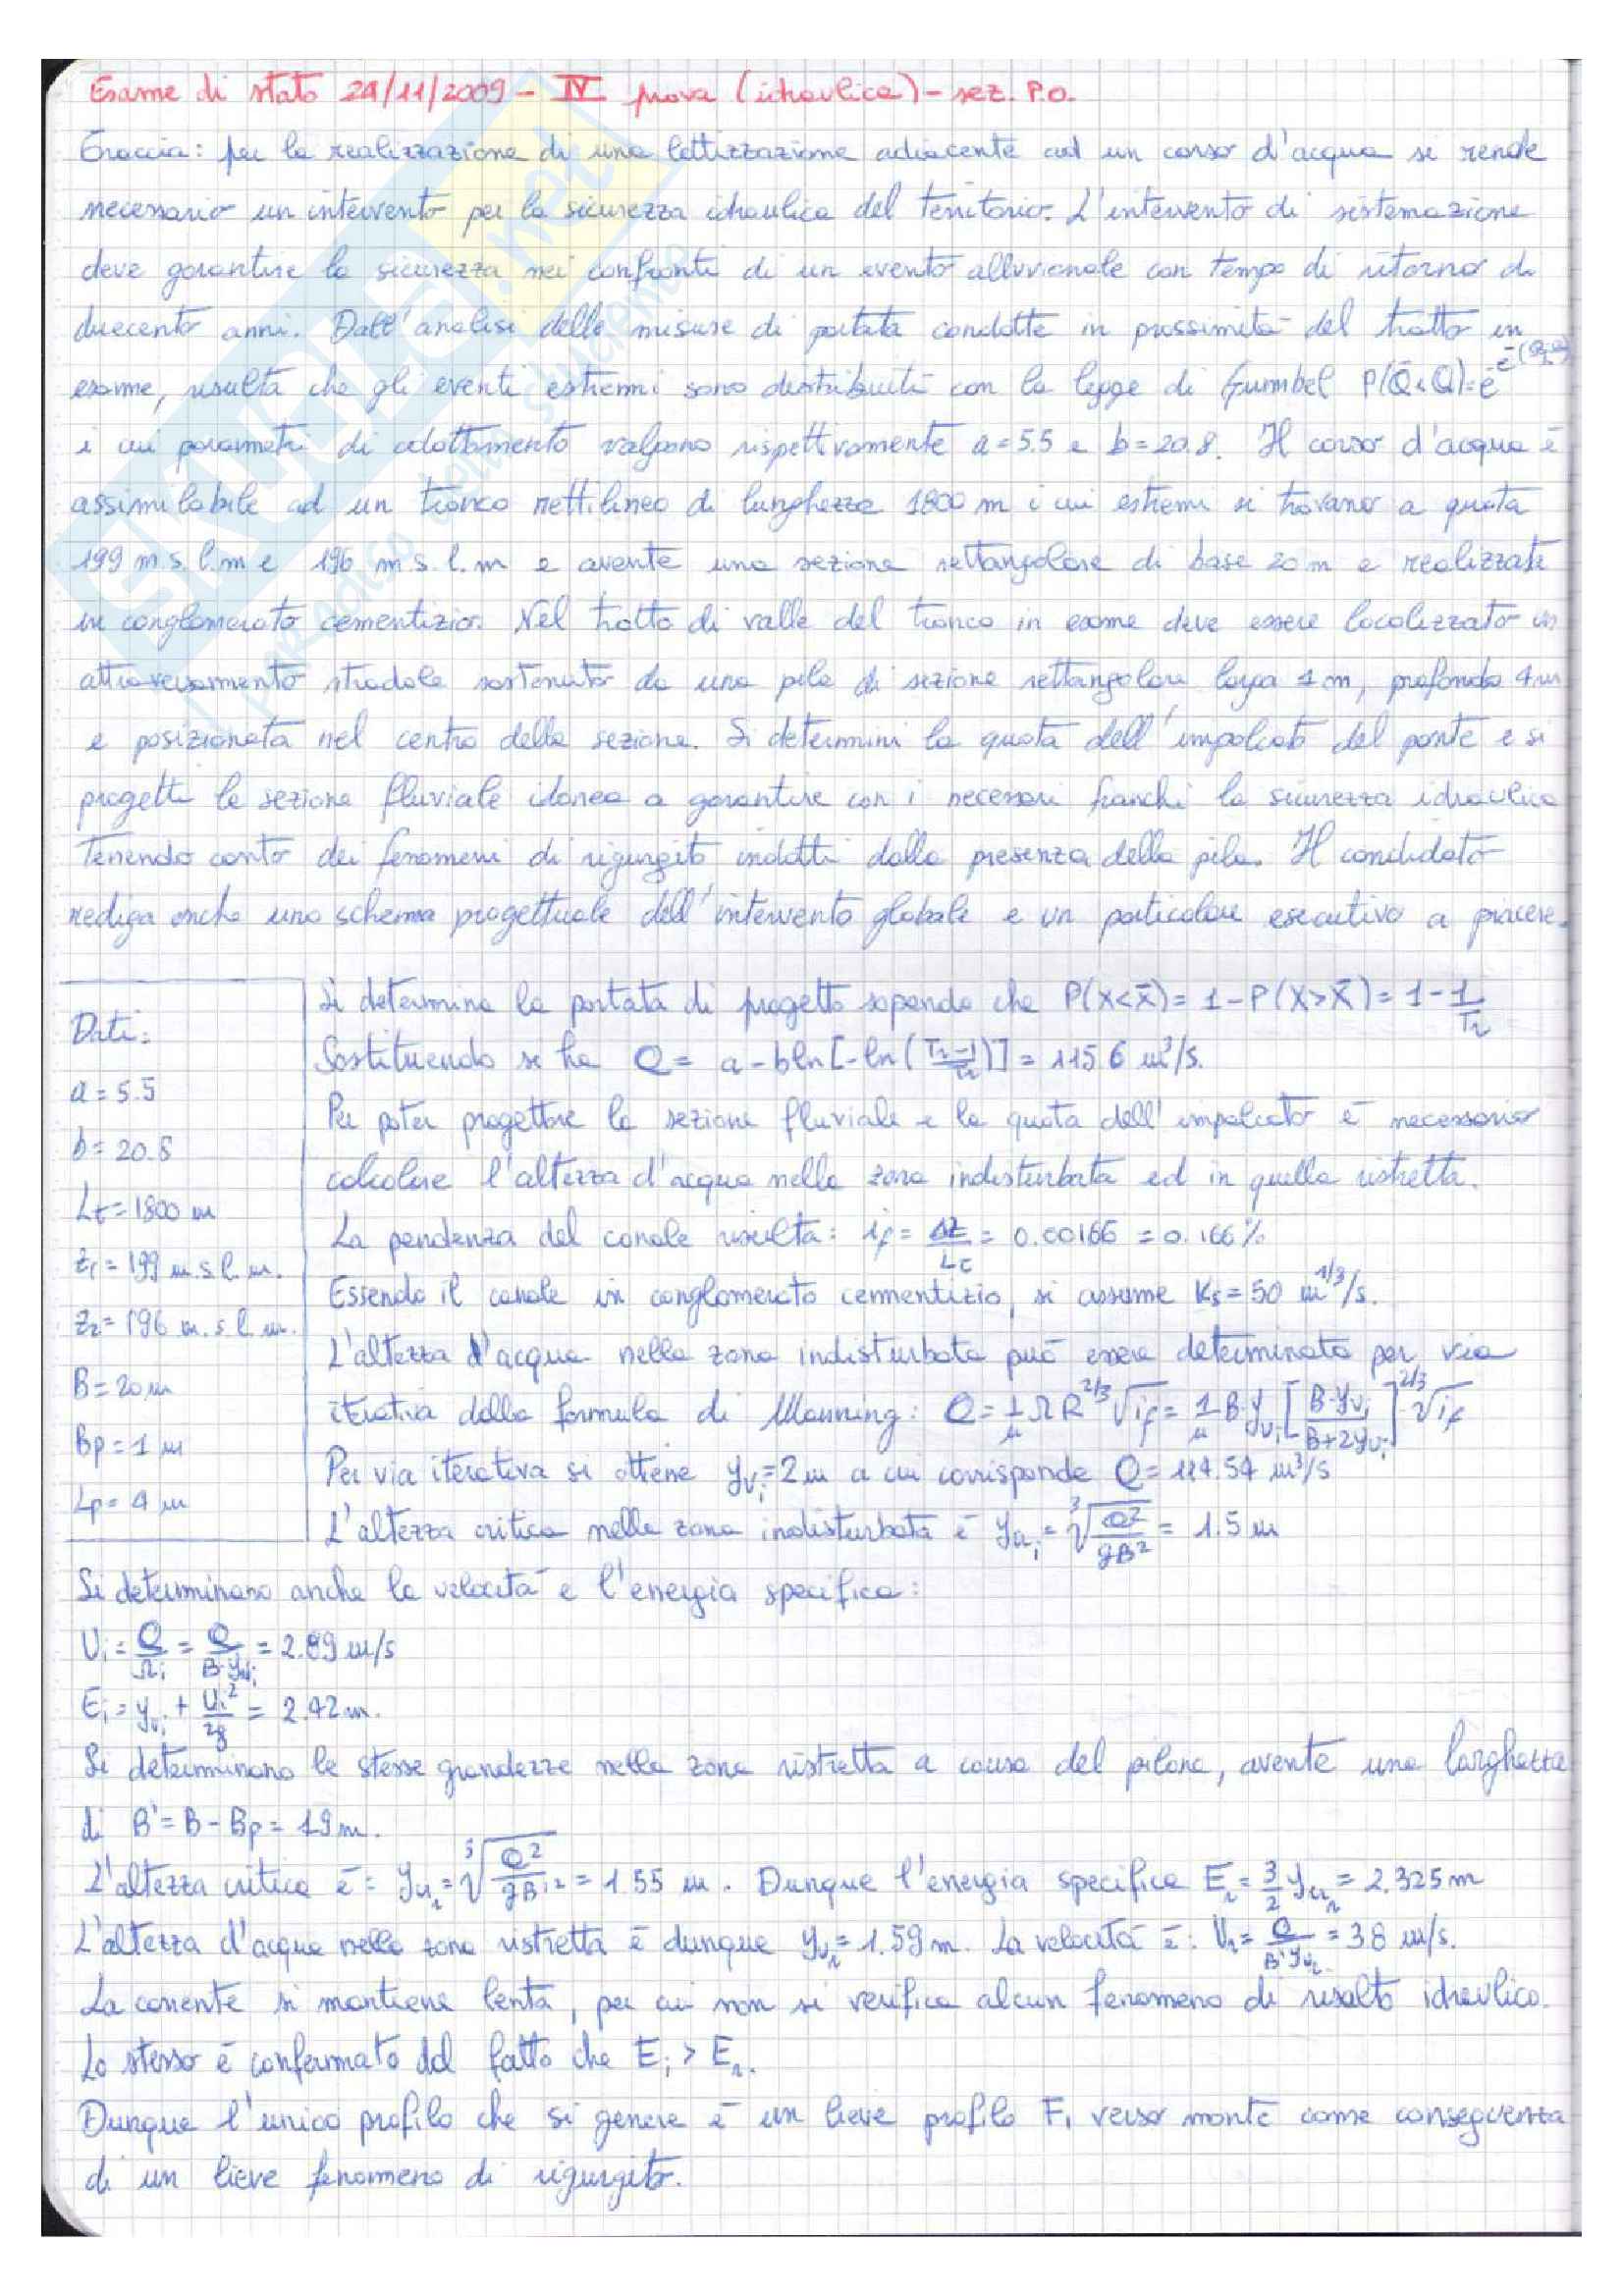 Esame di stato 24/11/2009 - IV prova (idraulica) - sez. P.O.
Traccia: per la realizzazione di una lottizzazione adiacente ad un corso d'acqua si rende
necessario un intervento per la sicurezza idraulica del territorio. L'intervento di sistemazione
deve garantire la sicurezza nei confronti di un evento alluvionale con tempo di ritorno di
duecento anni. Dall'analisi delle misure di portata condotte in prossimità del tratto in
esame, risulta che gli eventi estremi sono distribuiti con la legge di Gumbel P(Q̄<Q)=e
i cui parametri di adattamento valgono rispettivamente a=5.5 e b=20.8. Il corso d'acqua è
assimilabile ad un tronco rettilineo di lunghezza 1800 m i cui estremi si trovano a quota
199 m.s.l.m e 196 m.s.l.m e avente una sezione rettangolare di base 20 m e realizzata
in conglomerato cementizio. Nel tratto di valle del tronco in esame deve essere localizzato un
attraversamento stradale sostenuto da una pila di sezione rettangolare larga 1 m, profonda 4 m
e posizionata nel centro della sezione. Si determini la quota dell'impalcato del ponte e si
progetti la sezione fluviale idonea a garantire con i necessari franchi la sicurezza idraulica
tenendo conto dei fenomeni di rigurgito indotti dalla presenza della pila. Il candidato
rediga anche uno schema progettuale dell'intervento globale e un particolare esecutivo a piacere.
Dati:
a = 5.5
b = 20.8
Lt = 1800 m
z1 = 199 m.s.l.m.
z2 = 196 m.s.l.m.
B = 20 m
Bp = 1 m
Lp = 4 m
Si determina la portata di progetto sapendo che P(X<x̄) = 1 - P(X>x̄) = 1 - 1/Tr
Sostituendo si ha Q = a - b ln[-ln((Tr-1)/Tr)] = 115.6 m³/s.
Per poter progettare la sezione fluviale e la quota dell'impalcato è necessario
calcolare l'altezza d'acqua nella zona indisturbata ed in quella ristretta.
La pendenza del canale risulta: if = Δz/Lt = 0.00166 = 0.166%
Essendo il canale in conglomerato cementizio, si assume Ks = 50 m^1/3/s.
L'altezza d'acqua nella zona indisturbata può essere determinata per via
iterativa dalla formula di Manning: Q = 1/n Ω R^2/3 √if = 1/n B·yui [B·yui/(B+2yui)]^2/3 √if
Per via iterativa si ottiene yui = 2 m a cui corrisponde Q = 114.54 m³/s
L'altezza critica nella zona indisturbata è yci = ³√(Q²/gB²) = 1.5 m
Si determinano anche la velocità e l'energia specifica:
Ui = Q/Ωi = Q/(B·yui) = 2.89 m/s
Ei = yui + Ui²/2g = 2.42 m.
Si determinano le stesse grandezze nella zona ristretta a causa del pilone, avente una larghezza
di B' = B - Bp = 19 m.
L'altezza critica è: ycr = ³√(Q²/gB'²) = 1.55 m. Dunque l'energia specifica Er = 3/2 ycr = 2.325 m
L'altezza d'acqua nella zona ristretta è dunque yur = 1.59 m. La velocità è: Ur = Q/(B'yur) = 3.8 m/s.
La corrente si mantiene lenta, per cui non si verifica alcun fenomeno di risalto idraulico.
Lo stesso è confermato dal fatto che Ei > Er.
Dunque l'unico profilo che si genera è un lieve profilo F1 verso monte come conseguenza
di un lieve fenomeno di rigurgito.